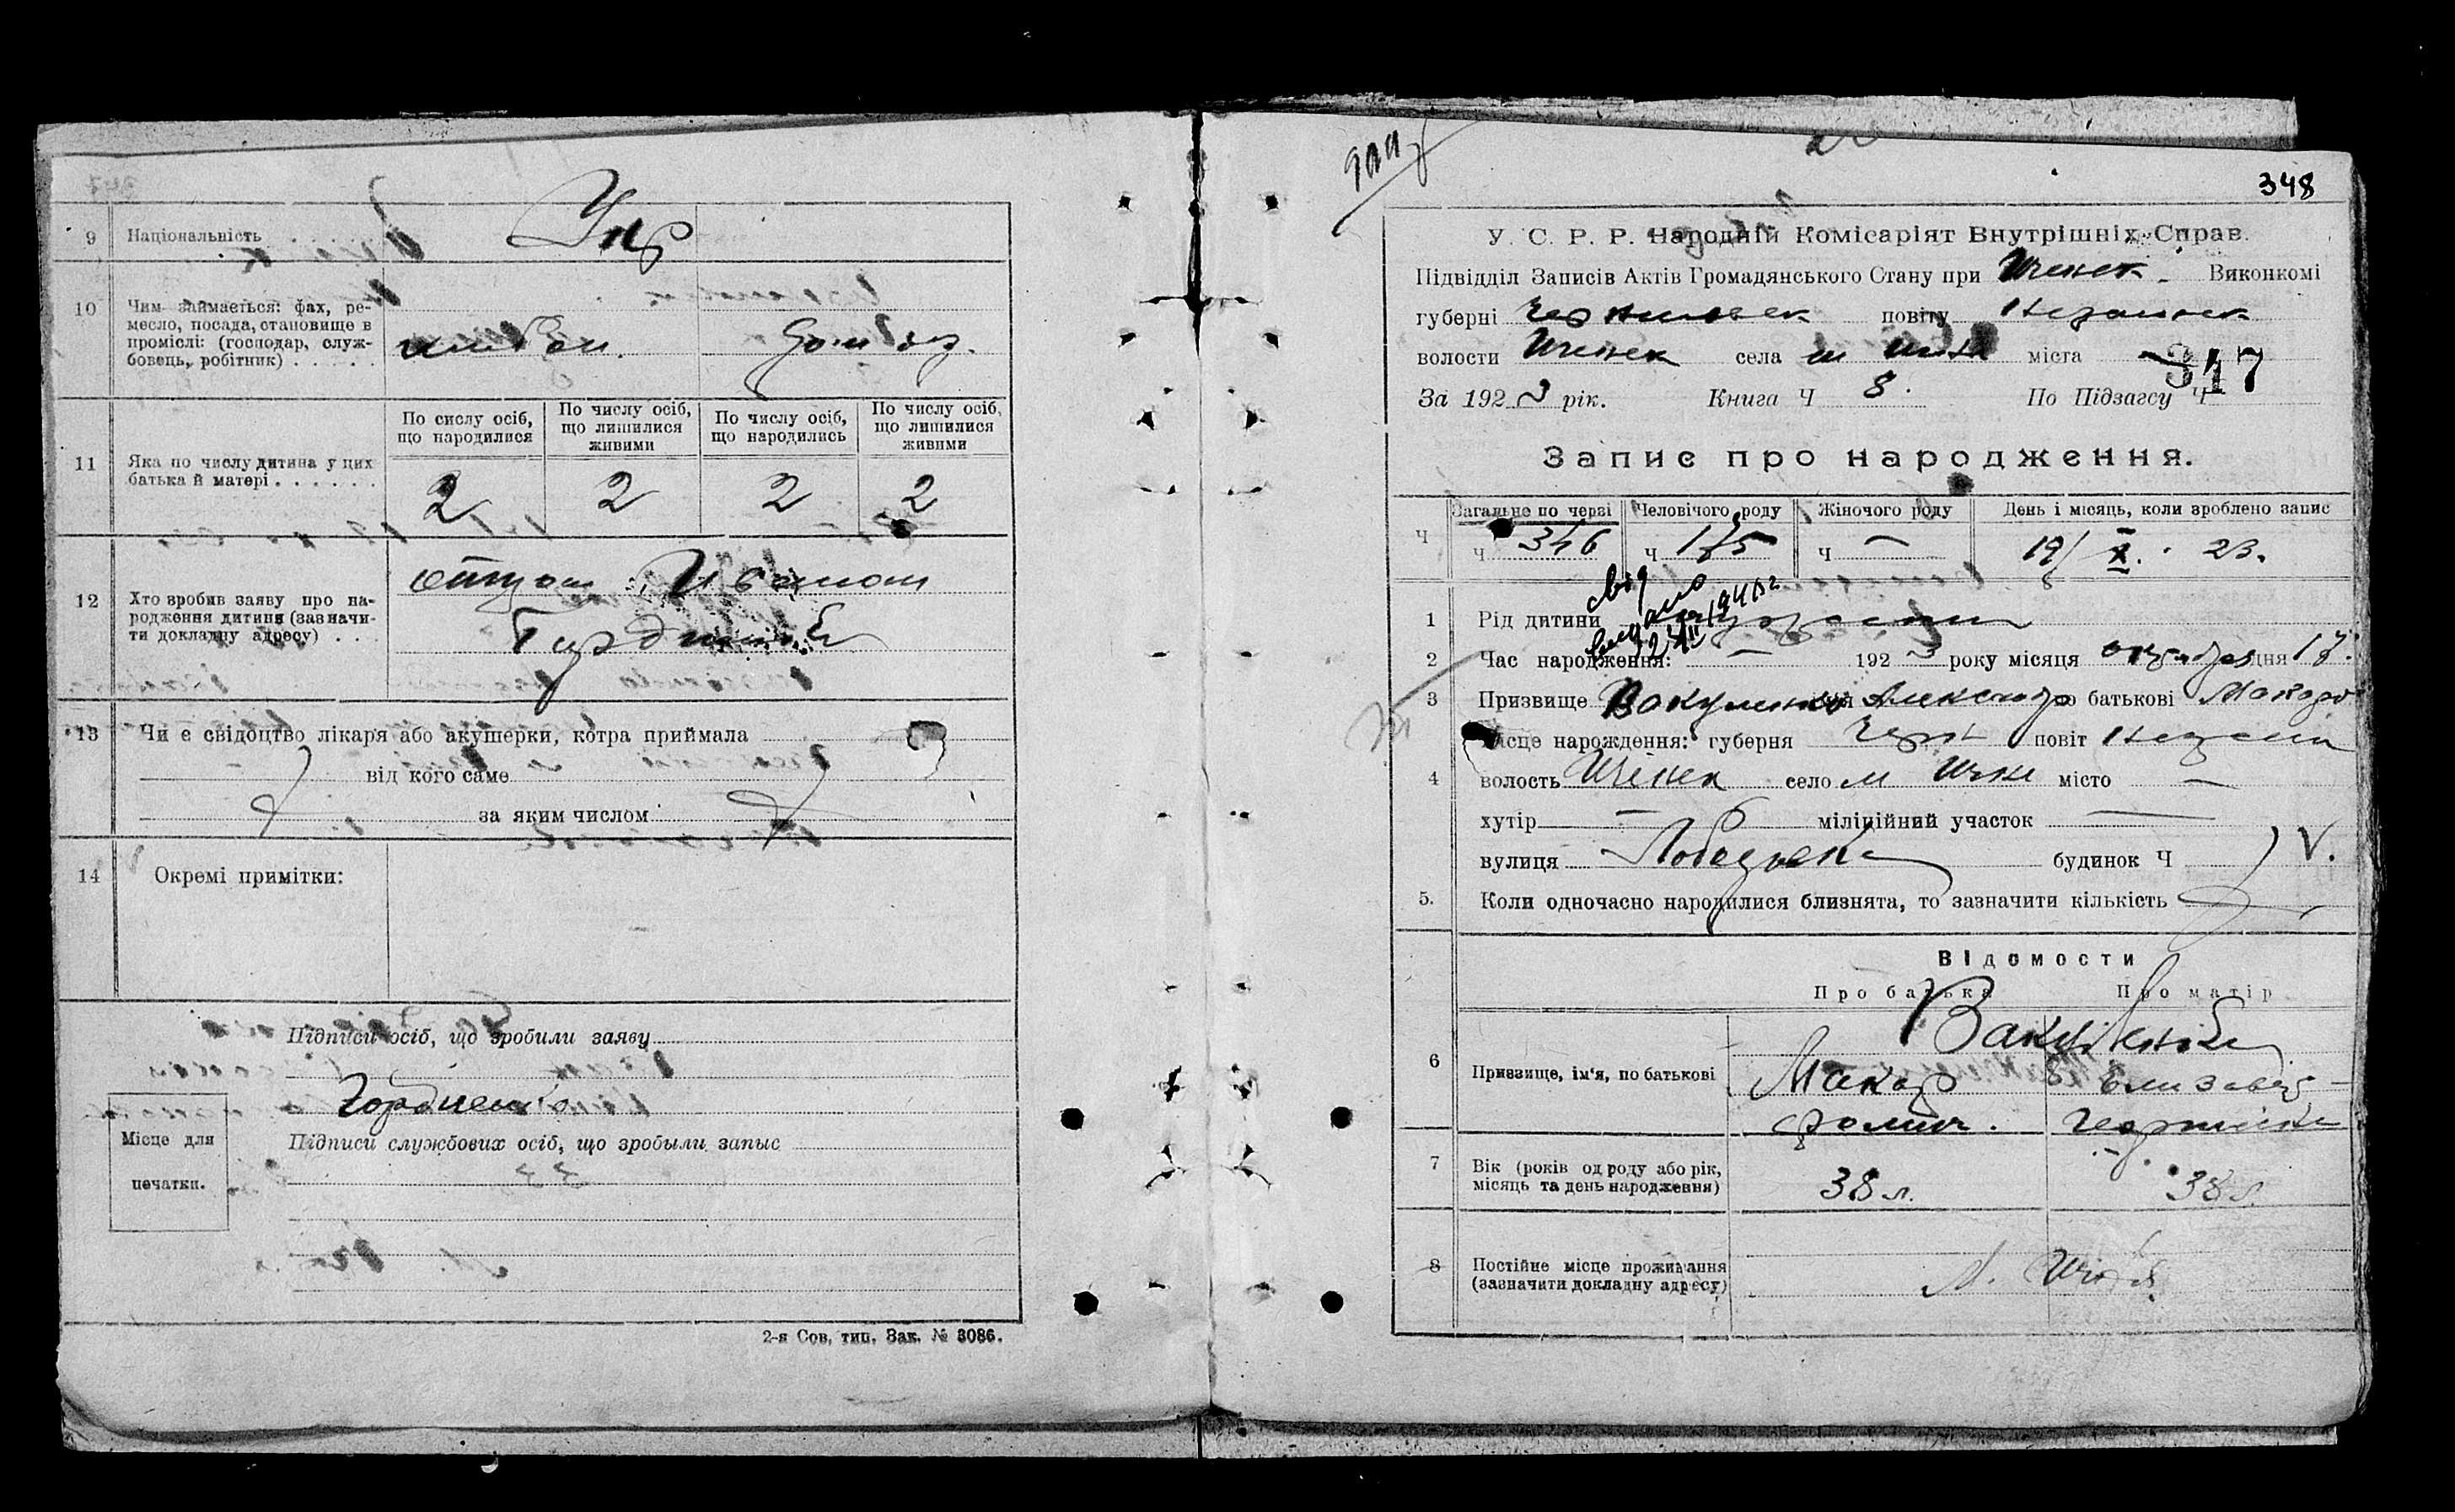 9 Національність Укр
10 Чим займається: фах, ре-
месло, посада, становище в
проміслі: (господар, служ-
бовець, робітник)
хлибоп. Домхоз.
По сислу осіб, що народилися
По числу осіб, що лишилися живими
По числу осіб, що народились
По числу осіб, що лишилися живими
11 Яка по числу дитина у цих
батька й матері
2 2 2 2
12 Хто зробив заяву про на-
родження дитини (зазначи-
ти докладну адресу)
отцом
13 Чи є свідоцтво лікаря або акушерки, котра приймала
від кого саме
за яким числом
14 Окремі примітки:
Підписи осіб, що зробили заяву
Гордиенко
Місце для
печатки.
Підписи службових осіб, що зробыли запыс
2-я Сов. тип. Зак. № 3086.
348
У. С. Р. Р. Народній Комісаріят Внутрішніх Справ.
Підвідділ Записів Актів Громадянського Стану при Иченск. Виконкомі
губерні Черниговск повіту Нежинск
волости Иченск села м Ичня міста
347
За 1923 рік. Книга Ч 8. По Підзагсу Ч
Запис про народження.
Ч Загальне по черзі Человічого роду Жіночого роду День і місяць, коли зроблено запис
Ч 346 Ч 175 Ч — 19/X. 23.
1 Рід дитини
2 Час народження: — 1923 року місяця октября дня 17.
3 Призвище Вакуленко імя Александр по батькові Макаро
4 Місце народження: губерня Черн повіт Нежин
волость Иченск село м Ичня місто —
хутір — міліційний участок —
вулиця будинок Ч
5. Коли одночасно народилися близнята, то зазначити кількість
Відомости
Про батька Про матір
6 Призвище, ім'я, по батькові
Вакуленко
Макар Елизавета
Фомич. Георгиевна
7 Вік (років од роду або рік,
місяць та день народження)
38 л. 38 л.
8 Постійне місце проживання
(зазначити докладну адресу)
М. Ичня